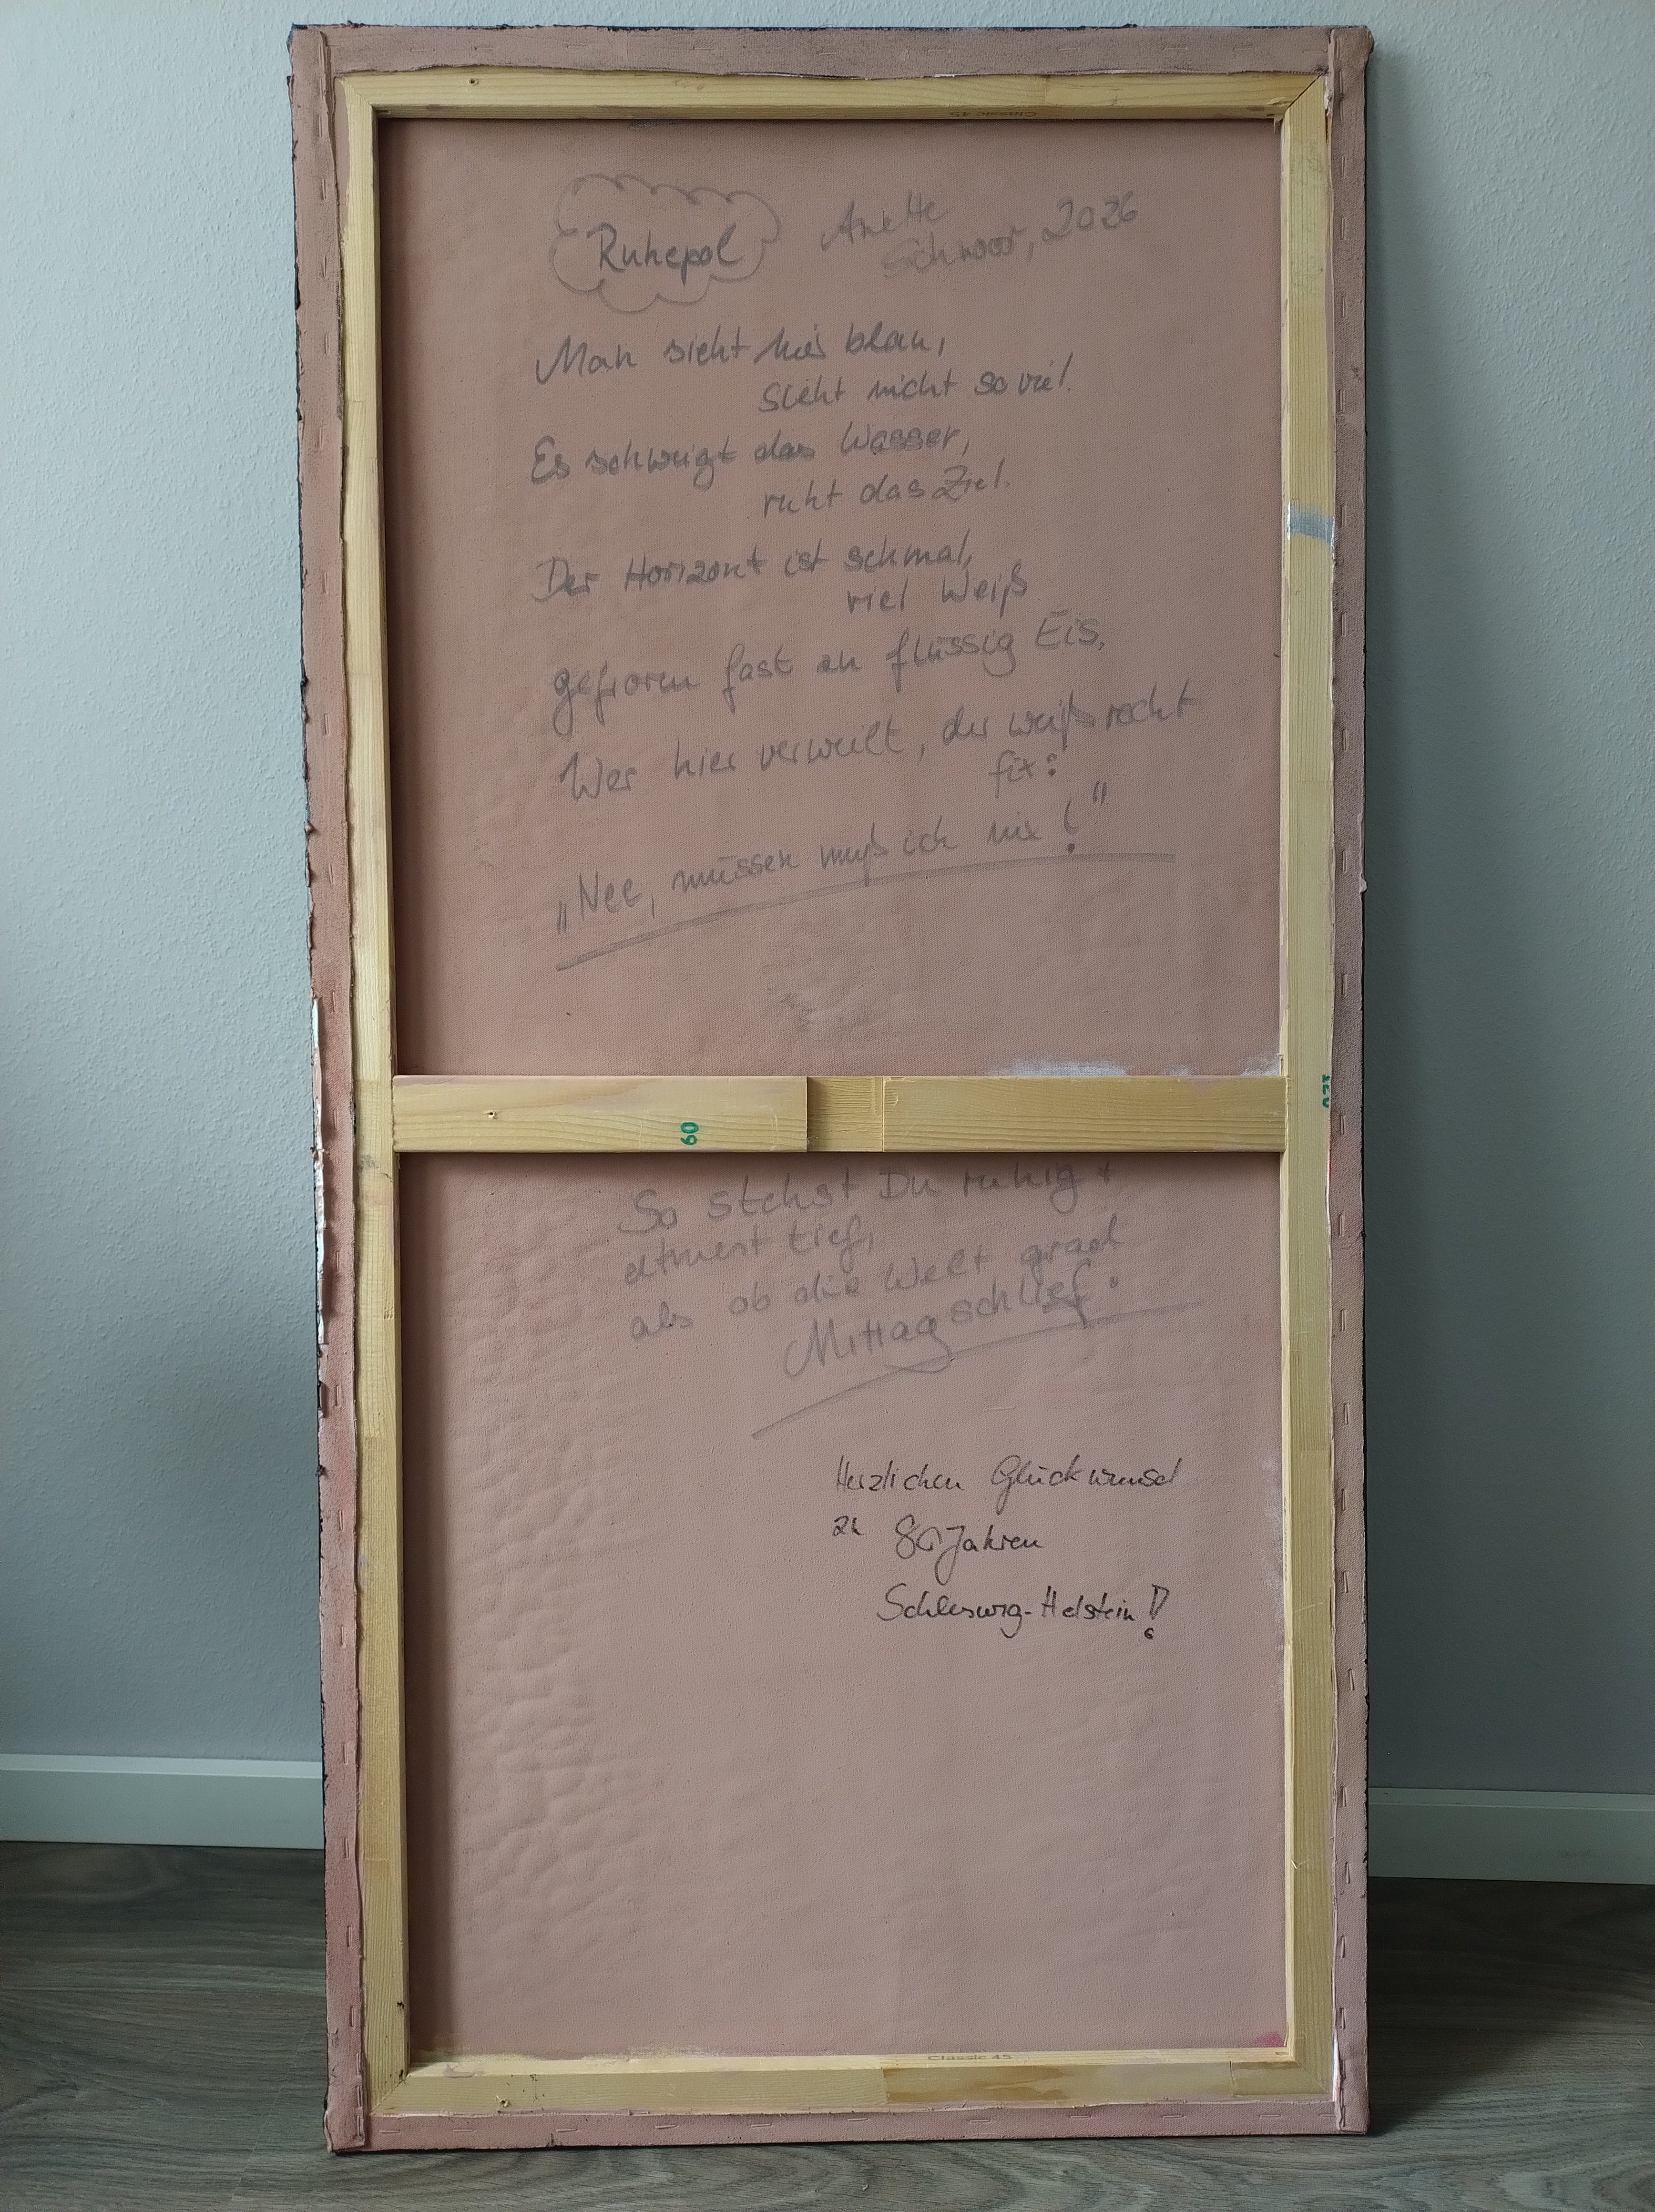 Classic 45
Ruhepol
Anette
Schnoor, 2026
Man sieht hier blau,
sieht nicht so viel.
Es schweigt das Wasser,
ruht das Ziel.
Der Horizont ist schmal,
viel Weiß
gefroren fast an flüssig Eis.
Wer hier verweilt, der weiß recht
fix:
„Nee, müssen muß ich nix!“
60
So stehst Du ruhig +
atmest tief,
als ob die Welt grad
Mittagschlief.
Herzlichen Glückwunsch
zu 80 Jahren
Schleswig-Holstein!
Classic 45